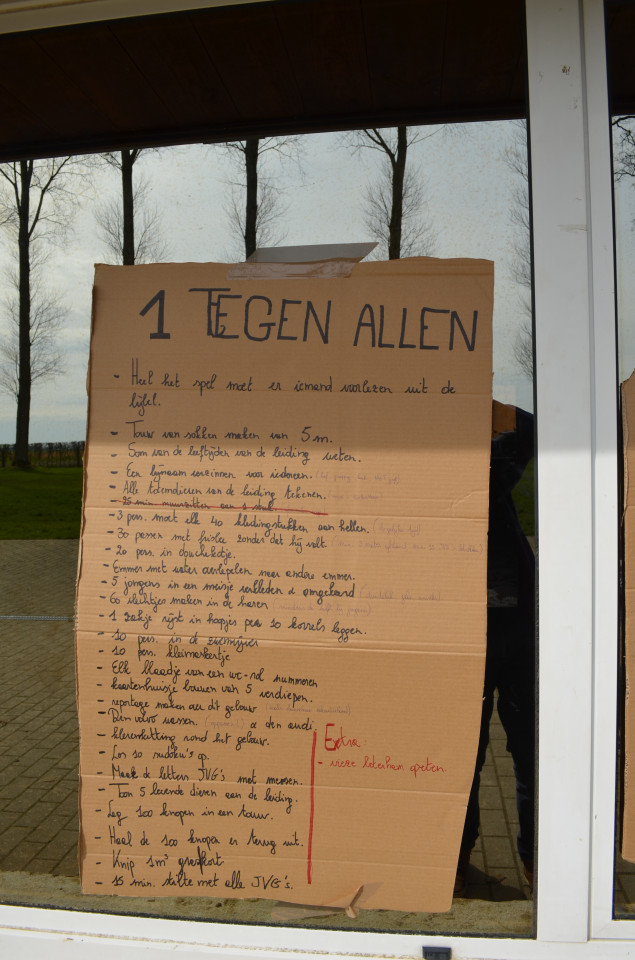 1 TEGEN ALLEN
- Heel het spel moet er iemand voorlezen uit de
bijbel.
- Touw van sokken maken van 5 m.
- Som van de leeftijden van de leiding weten.
- Een bijnaam verzinnen voor iedereen.
- Alle totemdieren van de leiding tekenen.
- 25 min muurzitten van
- 3 pers. moet elk 40 kledingstukken aan hebben.
- 30 passen met frisbee zonder dat hij valt.
- 20 pers. in douchehokje.
- Emmer met water overlepelen naar andere emmer.
- 5 jongens in een meisje verkleden & omgekeerd
- 60 vlechtjes maken in de haren
- 1 zakje rijst in hoopjes per 10 korrels leggen.
- 10 pers. in de
- 10 pers.
- Elk blaadje van een wc-rol nummeren
- kaartenhuisje bouwen van 5 verdiepen.
- reportage maken over dit gebouw
- Den volvo wassen. & den audi.
- klerenketting rond het gebouw.
- Los 10 sudoku's op.
- Maak de letters JVG's met mensen.
- Toon 5 levende dieren aan de leiding.
- Leg 100 knopen in een touw.
- Haal de 100 knopen er terug uit.
- Knip 1m³
- 15 min. stilte met alle JVG's.
Extra
- vieze boterham opeten.